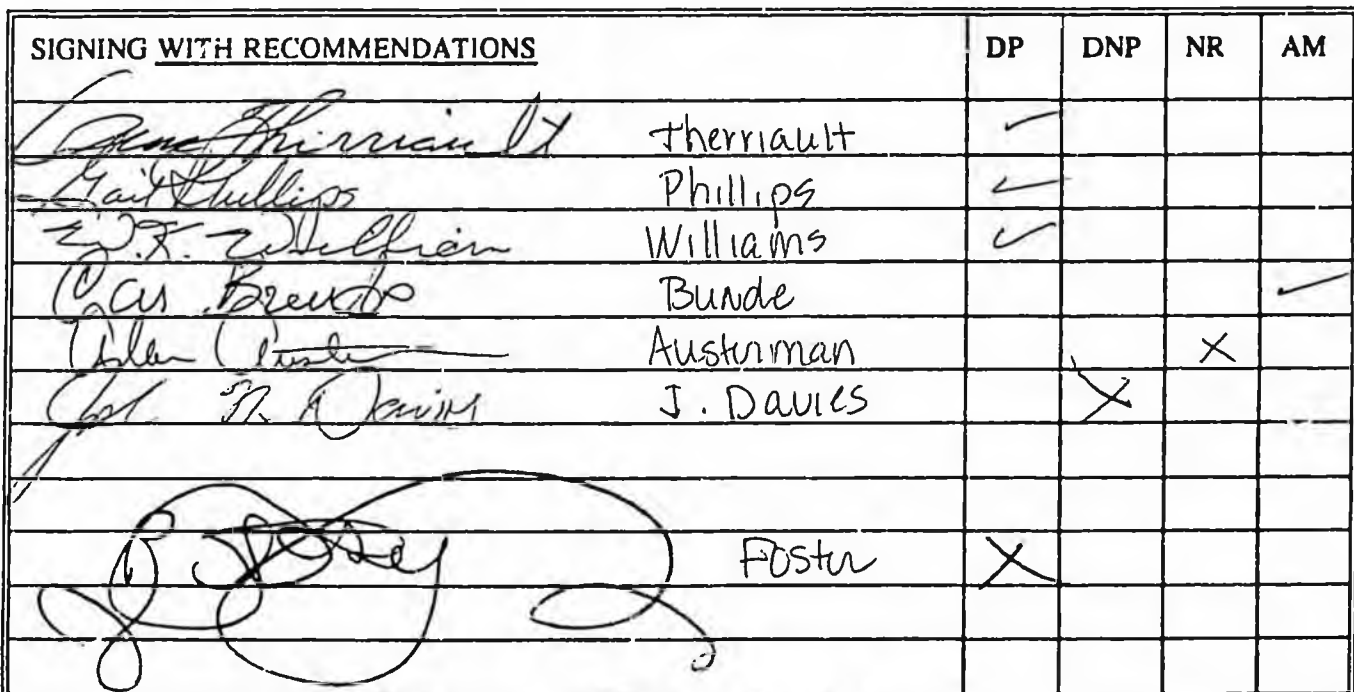 SIGNING WITH RECOMMENDATIONS DP DNP NR AM
Gene Therriault Therriault ✓
Gail Phillips Phillips ✓
W.K. Williams Williams ✓
Bunde ✓
Alan Auster Austerman X
John N. Davies J. Davies X
Foster X